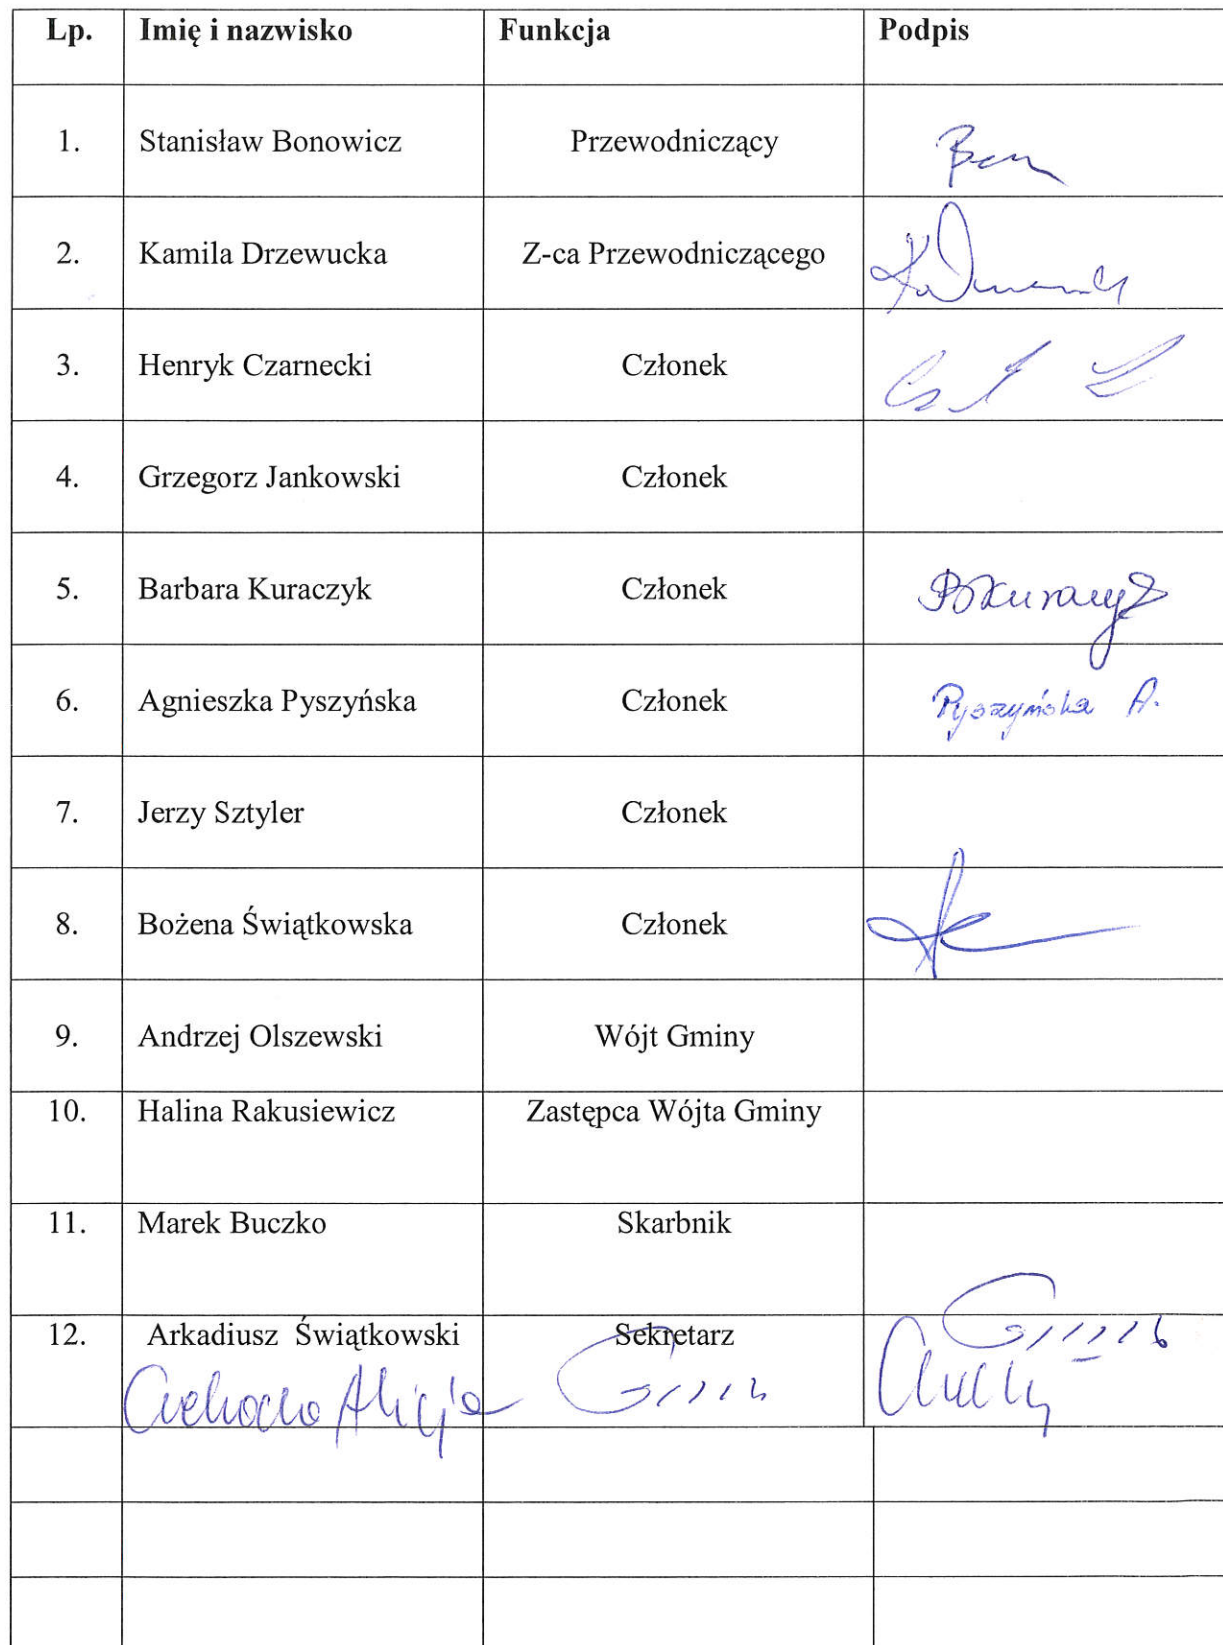 Lp. Imię i nazwisko Funkcja Podpis
1. Stanisław Bonowicz Przewodniczący
2. Kamila Drzewucka Z-ca Przewodniczącego
3. Henryk Czarnecki Członek
4. Grzegorz Jankowski Członek
5. Barbara Kuraczyk Członek
6. Agnieszka Pyszyńska Członek Pyszyńska A.
7. Jerzy Sztyler Członek
8. Bożena Świątkowska Członek
9. Andrzej Olszewski Wójt Gminy
10. Halina Rakusiewicz Zastępca Wójta Gminy
11. Marek Buczko Skarbnik
12. Arkadiusz Świątkowski Sekretarz
Alicja